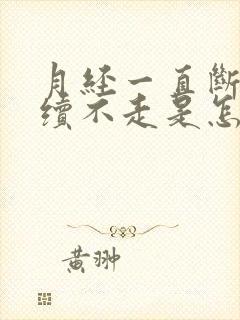 月经一直斷
續不走是怎
黄翀